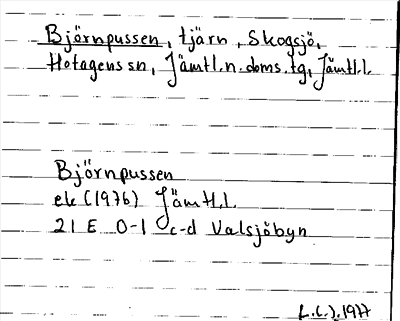 Björnpussen, tjärn, Skogsjö,
Hotagens sn, Jämtl.n.doms.tg, Jämtl.l.
Björnpussen
ek (1976) Jämtl.l.
21 E 0-1 c-d Valsjöbyn
1977